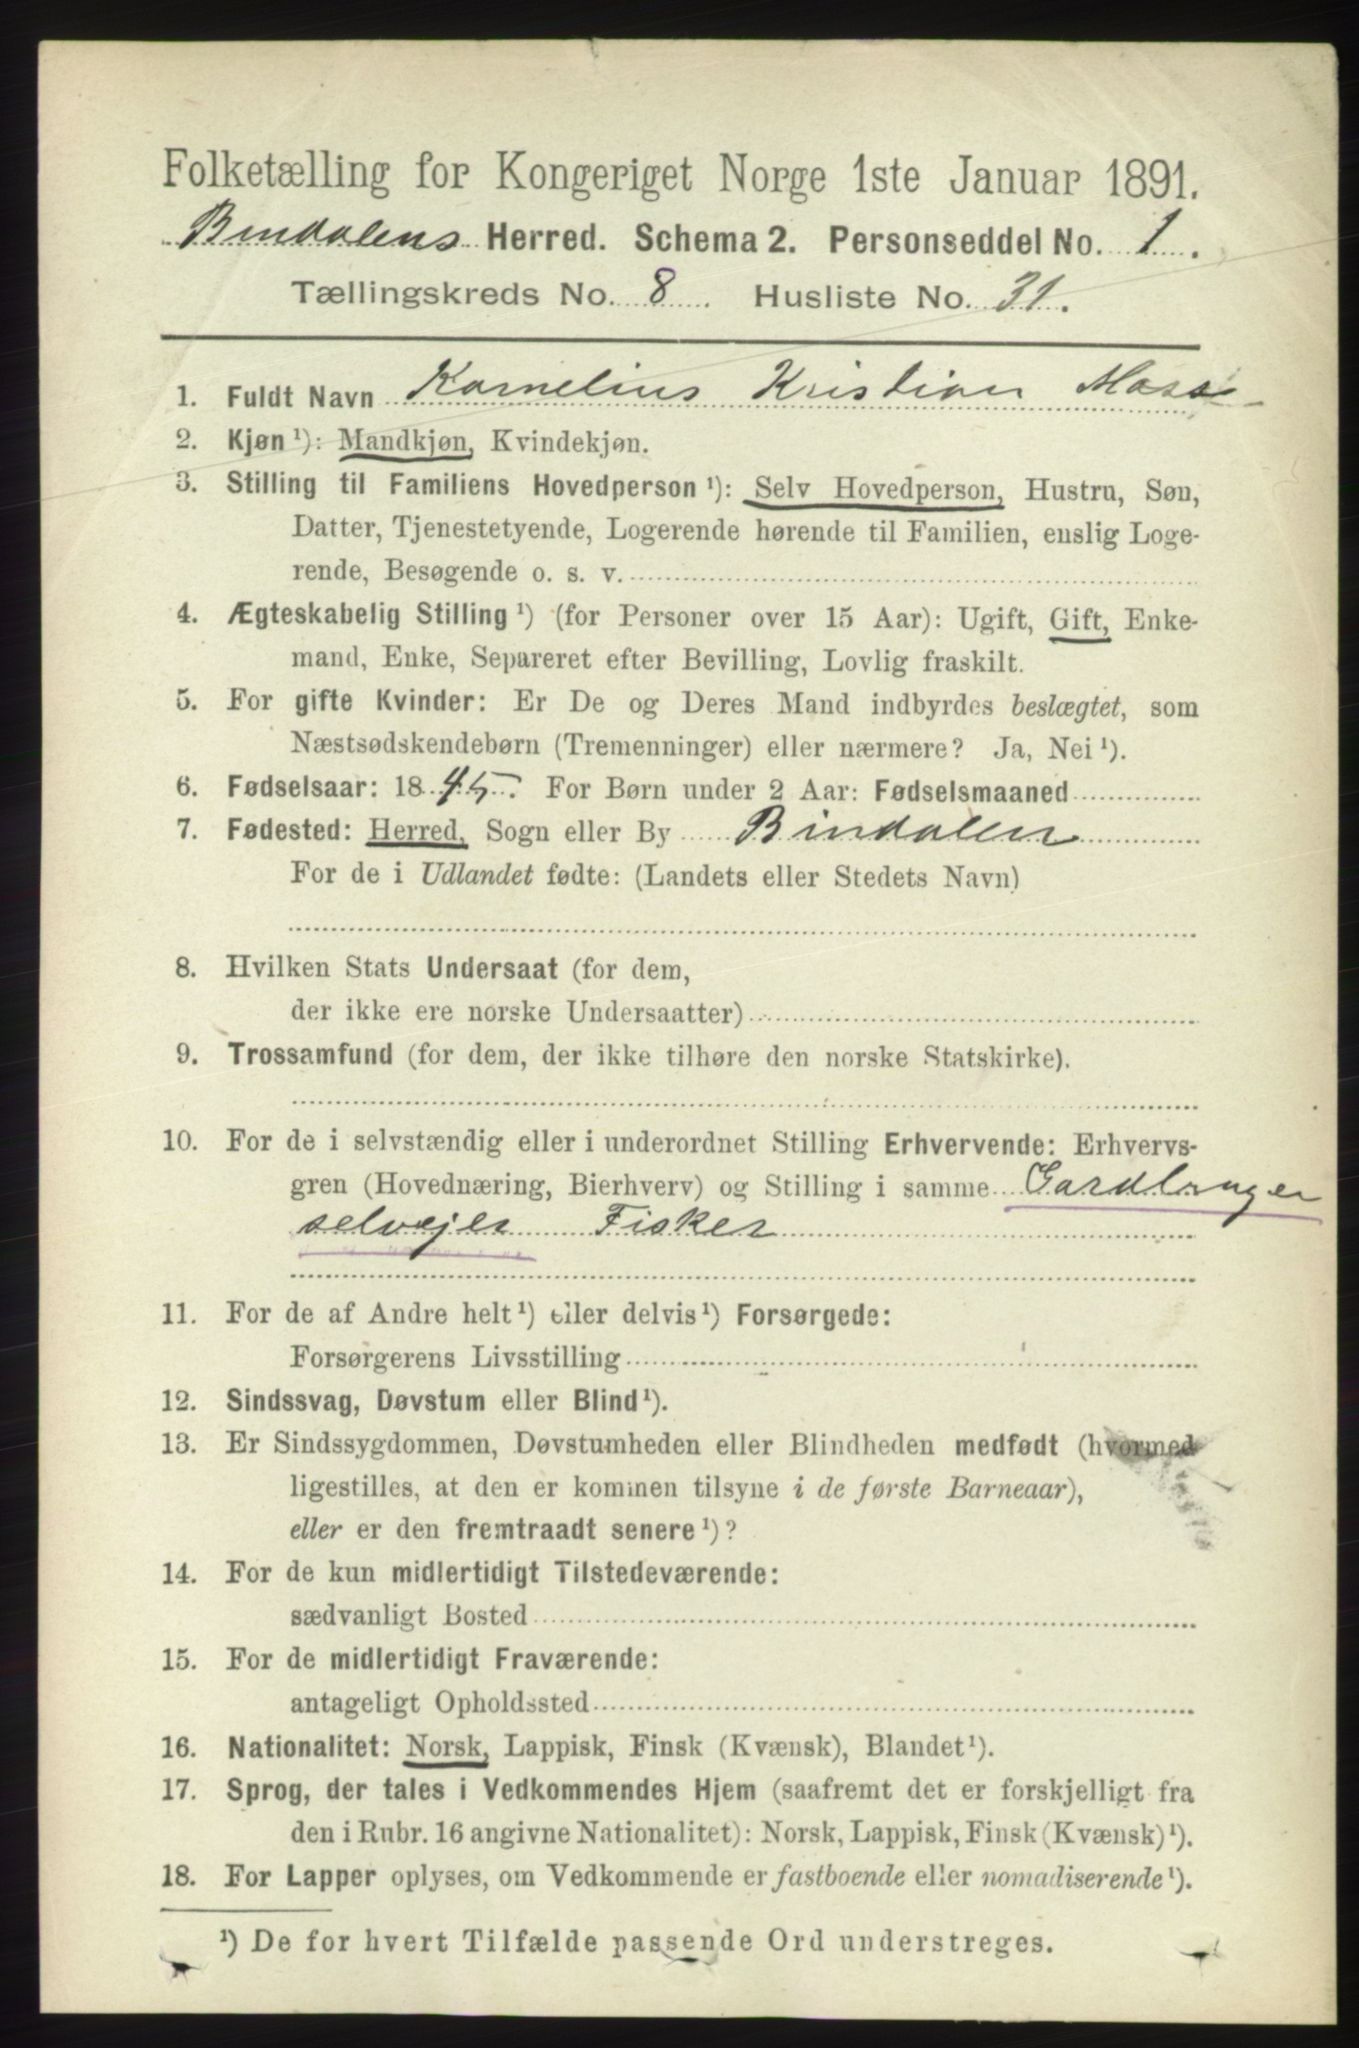 Folketælling for Kongeriget Norge 1ste Januar 1891.
Bindalens Herred. Schema 2. Personseddel No. 1.
Tællingskreds No. 8 Husliste No. 31.
1. Fuldt Navn Kornelius Kristian
2. Kjøn ¹): Mandkjøn, Kvindekjøn.
3. Stilling til Familiens Hovedperson ¹): Selv Hovedperson, Hustru, Søn,
Datter, Tjenestetyende, Logerende hørende til Familien, enslig Loge-
rende, Besøgende o. s. v.
4. Ægteskabelig Stilling ¹) (for Personer over 15 Aar): Ugift, Gift, Enke-
mand, Enke, Separeret efter Bevilling, Lovlig fraskilt.
5. For gifte Kvinder: Er De og Deres Mand indbyrdes beslægtet, som
Næstsødskendebørn (Tremenninger) eller nærmere? Ja, Nei ¹).
6. Fødselsaar: 1845. For Børn under 2 Aar: Fødselsmaaned
7. Fødested: Herred, Sogn eller By Bindalen
For de i Udlandet fødte: (Landets eller Stedets Navn)
8. Hvilken Stats Undersaat (for dem,
der ikke ere norske Undersaatter)
9. Trossamfund (for dem, der ikke tilhøre den norske Statskirke).
10. For de i selvstændig eller i underordnet Stilling Erhvervende: Erhvervs-
gren (Hovednæring, Bierhverv) og Stilling i samme Gardbruger
selvejer Fisker
11. For de af Andre helt ¹) eller delvis ¹) Forsørgede:
Forsørgerens Livsstilling
12. Sindssvag, Døvstum eller Blind ¹).
13. Er Sindssygdommen, Døvstumheden eller Blindheden medfødt (hvormed
ligestilles, at den er kommen tilsyne i de første Barneaar),
eller er den fremtraadt senere ¹)?
14. For de kun midlertidigt Tilstedeværende:
sædvanligt Bosted
15. For de midlertidigt Fraværende:
antageligt Opholdssted
16. Nationalitet: Norsk, Lappisk, Finsk (Kvænsk), Blandet ¹).
17. Sprog, der tales i Vedkommendes Hjem (saafremt det er forskjelligt fra
den i Rubr. 16 angivne Nationalitet): Norsk, Lappisk, Finsk (Kvænsk) ¹).
18. For Lapper oplyses, om Vedkommende er fastboende eller nomadiserende ¹).
¹) De for hvert Tilfælde passende Ord understreges.